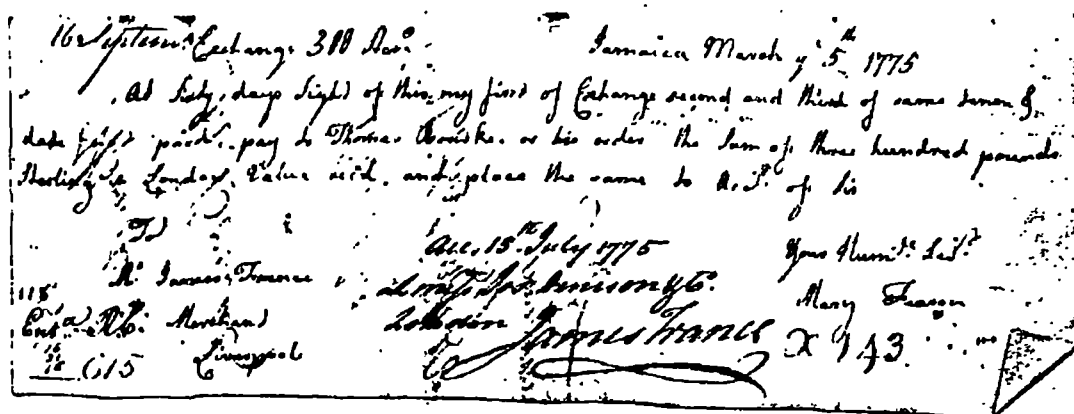 16 Septem.r Exchange 300 Ster.
Jamaica March y.e 5.th 1775
At Sixty days Sight of this my first of Exchange second and third of same tenor &
date not paid, pay to Thomas or his order the Sum of three hundred pounds
Sterling in London, Value rec'd, and place the same to Acc.t of Sir
To
M.r James France
Merchand
Liverpool
Acc. 15.th July 1775
Jos. Denison & Co.
London
James France
Your Hum.e Ser.t
Mary
X 143